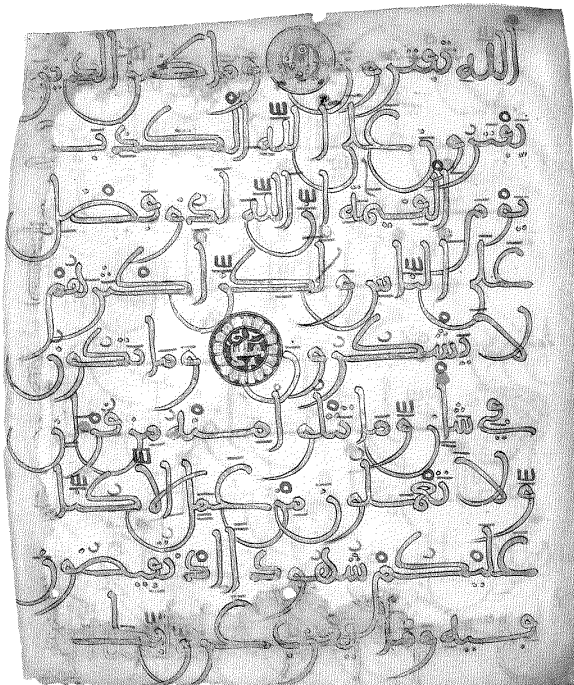 الله تفترون وما ظن الذين
يفترون على الله الكذب
يوم القيمة إن الله لذو فضل
على الناس ولكن أكثرهم
لا يشكرون وما تكون
في شأن وما تتلوا منه من قرءان
ولا تعملون من عمل إلا كنا
عليكم شهودا إذ تفيضون
فيه وما يعزب عن ربك